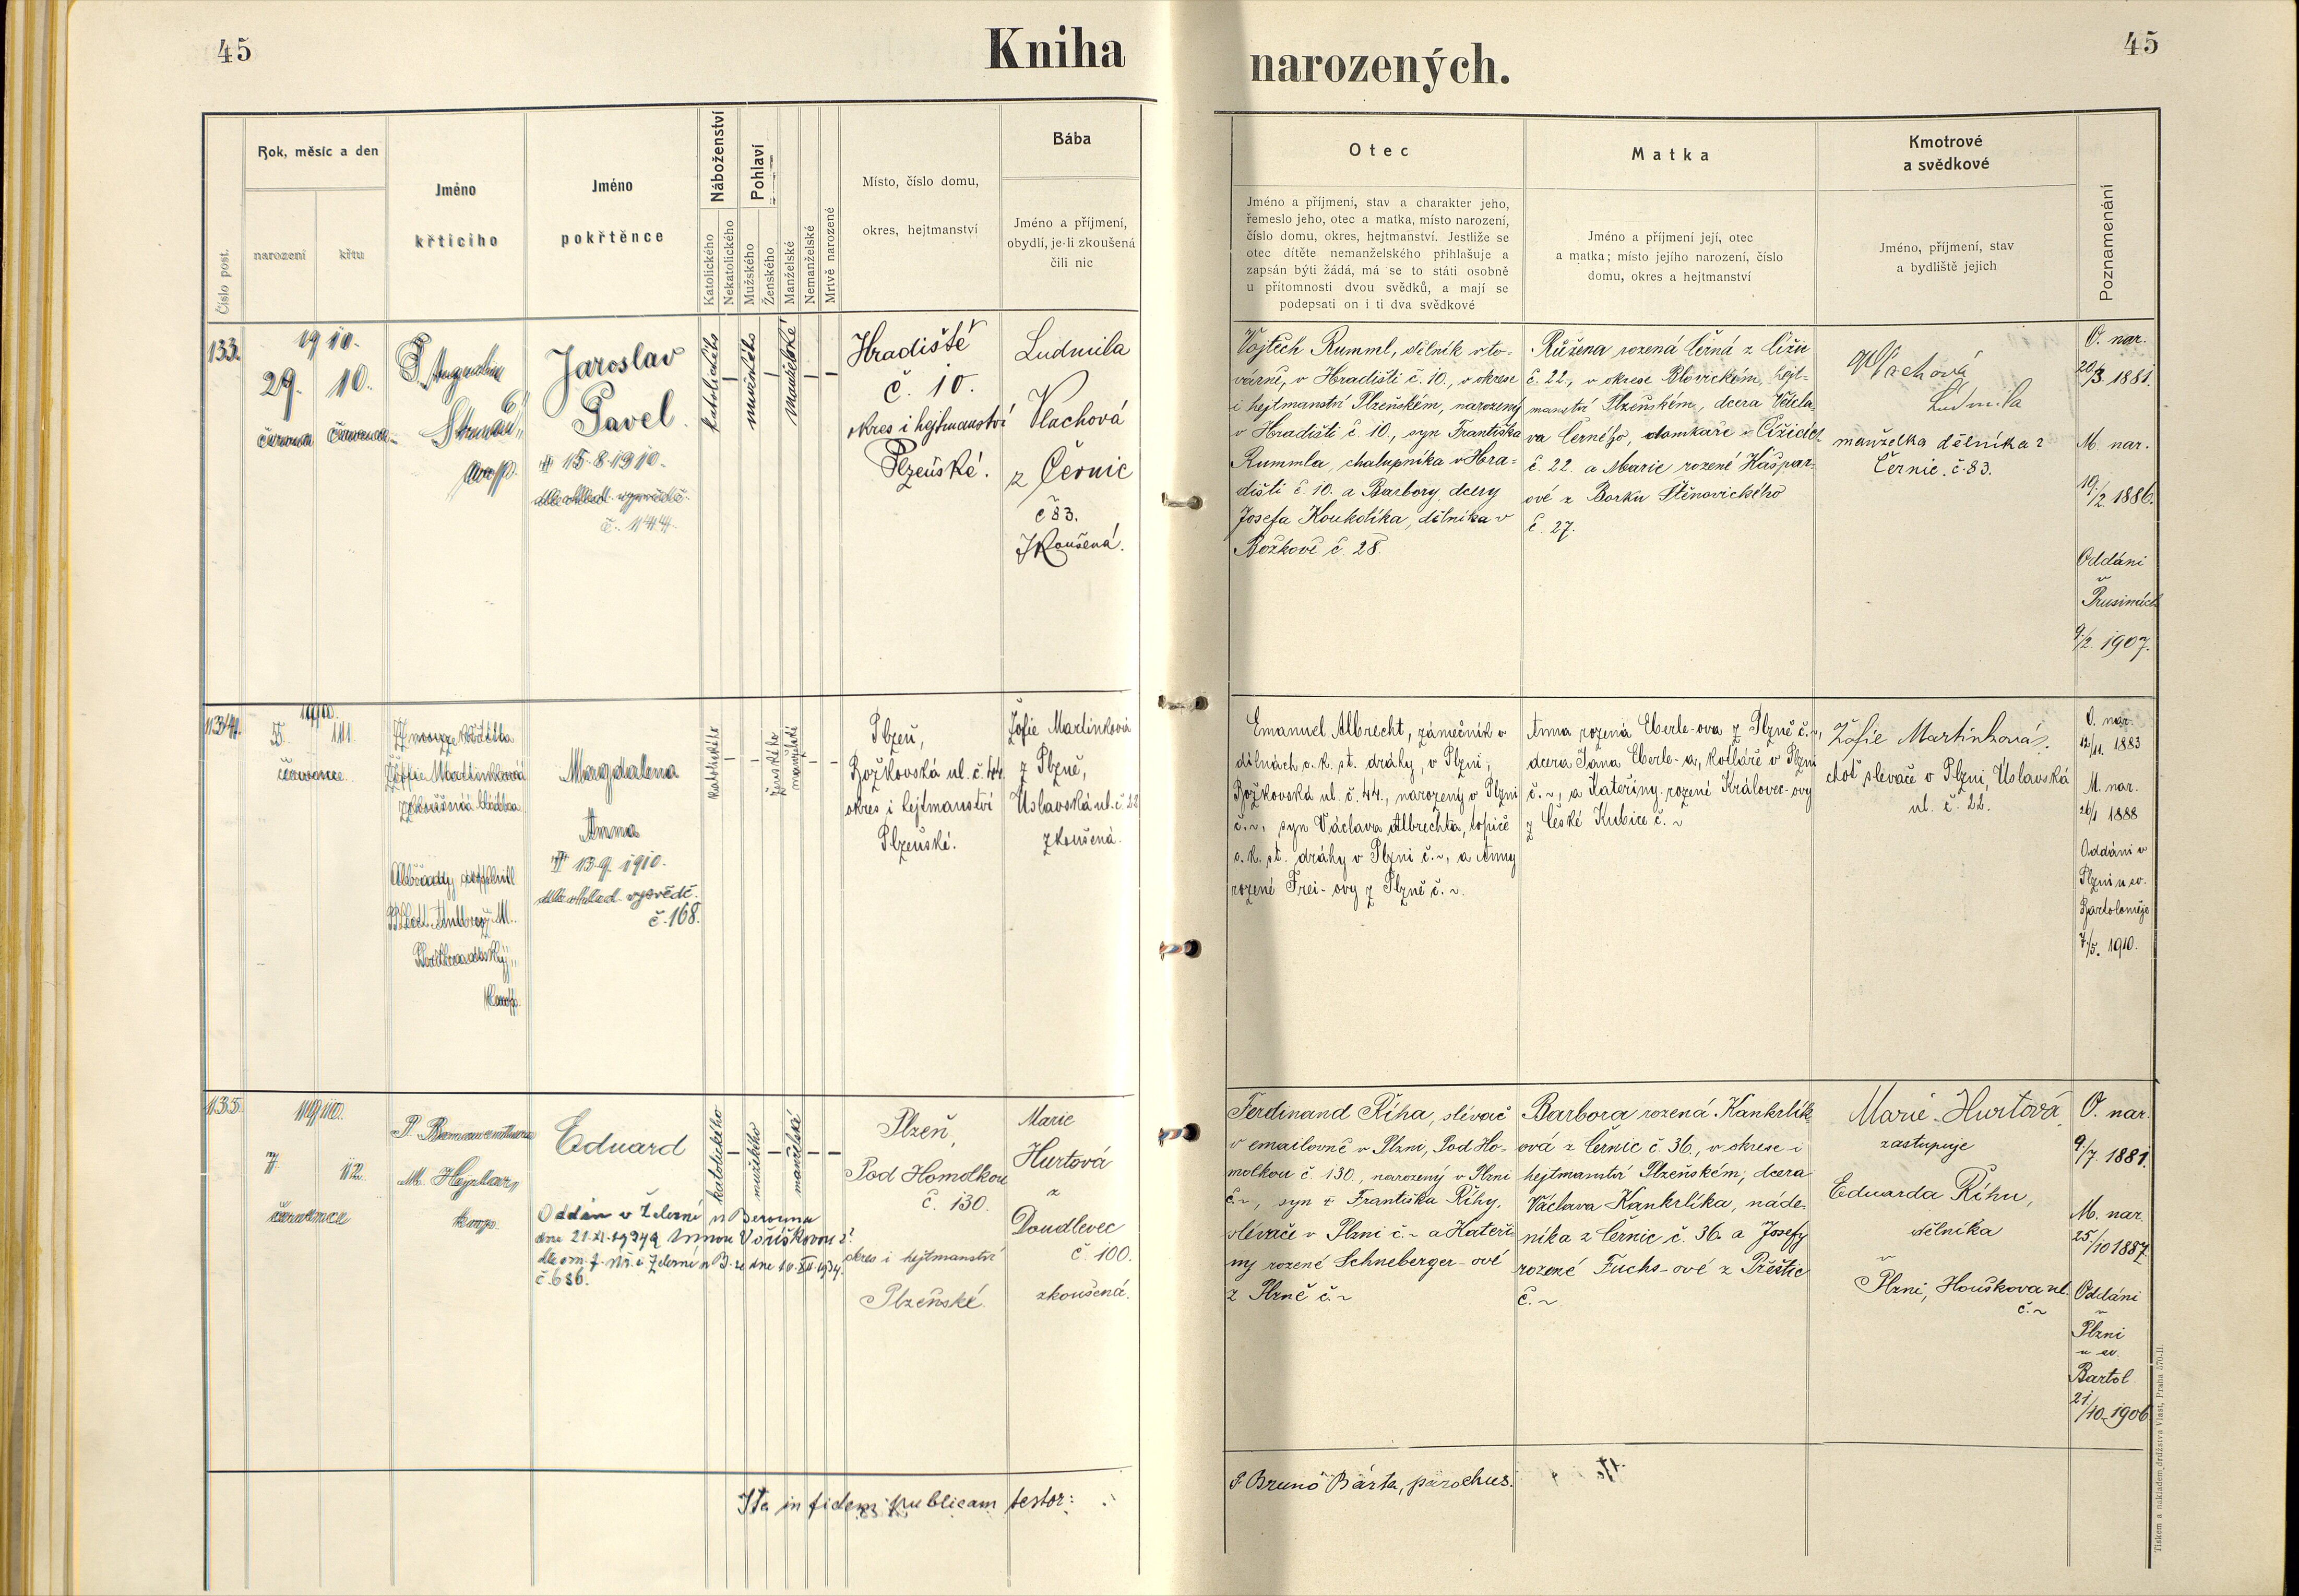 45
Kniha
narozených.
45
Číslo post.
Rok, měsíc a den
narození
křtu
Jméno
křtícího
Jméno
pokřtěnce
Náboženství
Katolického
Nekatolického
Pohlaví
Mužského
Ženského
Manželské
Nemanželské
Mrtvě narozené
Místo, číslo domu,
okres, hejtmanství
Bába
Jméno a příjmení,
obydlí, je-li zkoušená
čili nic
Otec
Jméno a příjmení, stav a charakter jeho,
řemeslo jeho, otec a matka, místo narození,
číslo domu, okres, hejtmanství. Jestliže se
otec dítěte nemanželského přihlašuje a
zapsán býti žádá, má se to státi osobně
u přítomnosti dvou svědků, a mají se
podepsati on i ti dva svědkové
Matka
Jméno a příjmení její, otec
a matka; místo jejího narození, číslo
domu, okres a hejtmanství
Kmotrové
a svědkové
Jméno, příjmení, stav
a bydliště jejich
Poznamenání
133.
1910.
29. 10.
června července
P. Augustin
Jaroslav
Pavel.
15.8.1910.
č. 144.
katolického
mužského
manželské
Hradiště
č. 10.
okres i hejtmanství
Plzeňské.
Ludmila
Vlachová
z Černic
č 83.
Zkoušená.
Vojtěch Rumml, dělník v to-
várně, v Hradišti č. 10., v okrese
i hejtmanství Plzeňském, narozený
v Hradišti č. 10., syn Františka
Rummla, chalupníka v Hra-
dišti č. 10. a Barbory, dcery
Josefa Koukolíka, dělníka v
Božkově č. 28.
Růžena rozená Černá z Čižic
č. 22., v okrese Blovickém, hejt-
manství Plzeňském, dcera Václa-
va Černého, domkáře v Čižicích
č. 22. a Marie rozené Kašpar-
ové z Borku Štěnovického
č. 27.
Vlachová
Ludmila
manželka dělníka z
Černic. č. 83.
O. nar.
20/3. 1881.
M. nar.
19/2. 1886.
Oddáni
v
Prusinách
9/2. 1907.
134.
1910.
5. 11.
července
Žofie Martinková
zkoušená bába
Magdalena
Anna
13.9. 1910.
č. 168.
katolického
ženského
manželské
Plzeň,
Božkovská ul. č. 44.
okres i hejtmanství
Plzeňské.
Žofie Martinková
z Plzně,
Úslavská ul. č. 22
zkoušená.
Emanuel Albrecht, zámečník v
dílnách c. k. st. dráhy, v Plzni,
Božkovská ul. č. 44., narozený v Plzni
č. ~, syn Václava Albrechta, topiče
c. k. st. dráhy v Plzni č. ~, a Anny
rozené Frei-ovy z Plzně č. ~.
Anna rozená Eberle-ova z Plzně č. ~,
dcera Jana Eberle-a, kotláře v Plzni
č. ~, a Kateřiny rozené Královec-ovy
z České Kubice č. ~
Žofie Martinková
choť slévače v Plzni, Úslavská
ul. č. 22.
O. nar.
12/11. 1883
M. nar.
26/1 1888
Oddáni v
Plzni u sv.
Bartoloměje
7/5. 1910.
135.
1910.
7 12.
července
P.
M. Hejzlar,
Eduard
Oddán v Zderní n Berouna
č. 686.
katolického
mužského
manželské
Plzeň,
Pod Homolkou
č. 130.
okres i hejtmanství
Plzeňské
Marie
Hurtová
z
Doudlevec
č. 100.
zkoušená.
Ferdinand Říha, slévač
v emailovně v Plzni, Pod Ho-
molkou č. 130., narozený v Plzni
č. ~, syn Františka Říhy,
slévače v Plzni č. ~ a Kateři-
ny rozené Schneberger-ové
z Plzně č. ~
Barbora rozená Kankrlík-
ová z Černic č. 36., v okrese i
hejtmanství Plzeňském, dcera
Václava Kankrlíka, náde-
níka z Černic č. 36. a Josefy
rozené Fuchs-ové z Přeštic
č. ~
Marie Hurtová,
zastupuje
Eduarda Říhu,
dělníka
v
Plzni, Houškova ul.
č. ~
O. nar.
9./7. 1881.
M. nar.
25./10 1887.
Oddáni
v
Plzni
u sv.
Bartol.
21/10. 1906
Ita in fidem publicam testor:
P. Bruno Bárta, parochus.
Tiskem a nákladem družstva Vlast, Praha 570-II.